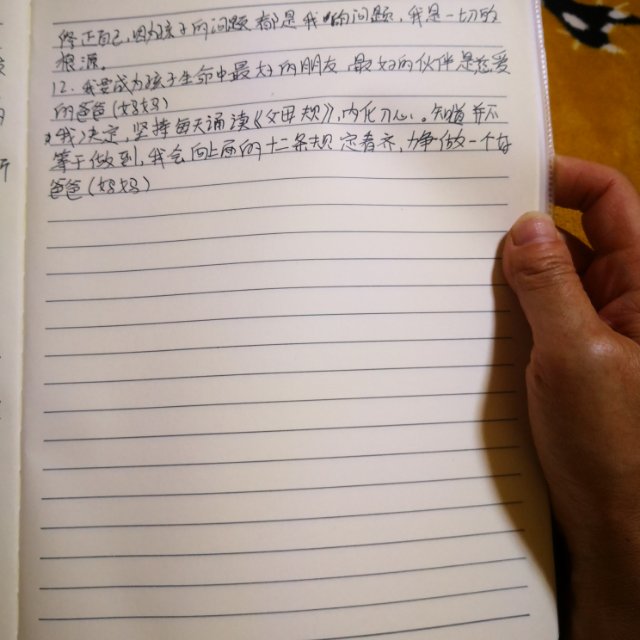 修正自己,因为孩子的问题都是我的问题,我是一切的
根源。
12.我要成为孩子生命中最好的朋友 最好的伙伴是慈爱
的爸爸(妈妈)
我决定,坚持每天诵读《父母规》,内化于心。知道并不
等于做到,我会向上面的十二条规定看齐,争做一个好
爸爸(妈妈)